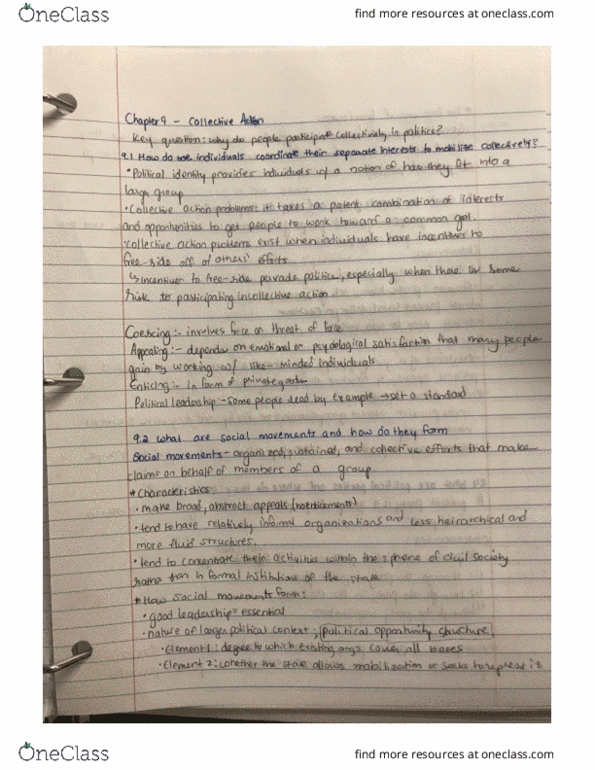 OneClass
find more resources at oneclass.com
Chapter 9 - Collective Action
Key question: why do people participate collectively in politics?
9.1 How do individuals coordinate their separate interests to mobilize collectively?
•Political identity provides individuals w/ a notion of how they fit into a
larger group
•Collective action problems: it takes a patent combination of interests
and opportunities to get people to work toward a common goal.
•collective action problems exist when individuals have incentives to
free-ride off of others' efforts
↳Incentives to free-ride pervade politics, especially when there is some
risk to participating in collective action
Coercing:- involves force or threat of force
Appealing:- depends on emotional or psycological satisfaction that many people
gain by working w/ like-minded individuals
Enticing:- in form of private goods
Political leadership:- some people lead by example → set a standard
9.2 what are social movements and how do they form
Social movements - organized, sustained, and collective efforts that make
claims on behalf of members of a group
* Characteristics:
• make broad, abstract appeals
• tend to have relatively informal organizations and less heirarchical and
more fluid structures.
• tend to concentrate their activities within the sphere of civil society
rather than in formal institutions of the state
* How social movements form:
• good leadership = essential
• nature of larger political context, political opportunity structure
• Element 1: degree to which existing orgs. cover all bases
• Element 2: whether the state allows mobilization or seeks to repress it
OneClass
find more resources at oneclass.com